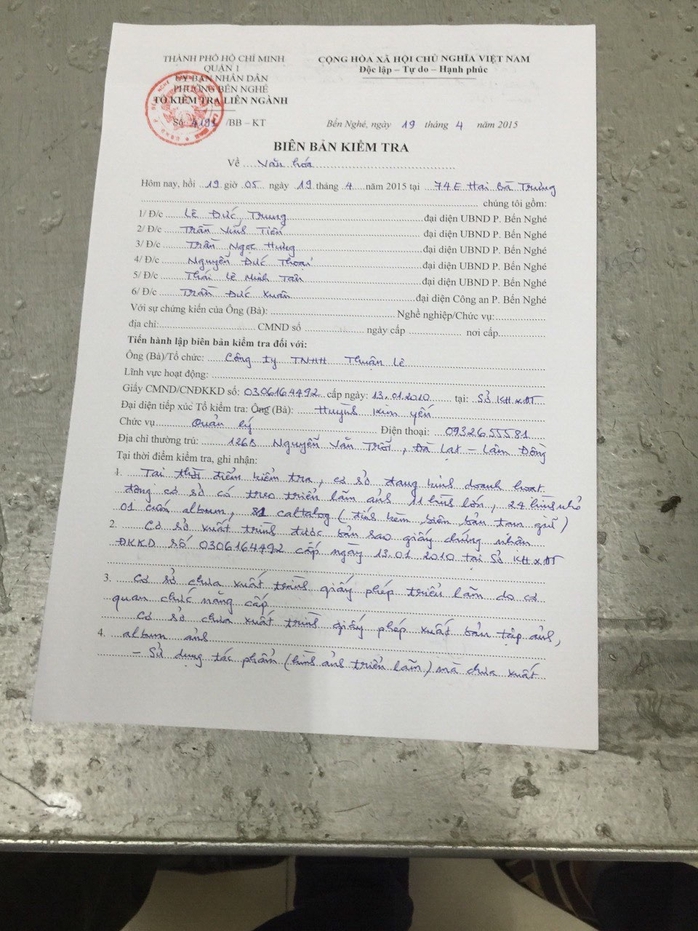 THÀNH PHỐ HỒ CHÍ MINH
QUẬN 1
ỦY BAN NHÂN DÂN
PHƯỜNG BẾN NGHÉ
TỔ KIỂM TRA LIÊN NGÀNH
Số /BB – KT
CỘNG HÒA XÃ HỘI CHỦ NGHĨA VIỆT NAM
Độc lập – Tự do – Hạnh phúc
Bến Nghé, ngày 19 tháng 4 năm 2015
BIÊN BẢN KIỂM TRA
Về Văn hóa
Hôm nay, hồi 19 giờ 05 ngày 19 tháng 4 năm 2015 tại 74E Hai Bà Trưng
chúng tôi gồm:
1/ Đ/c Lê Đức Trung đại diện UBND P. Bến Nghé
2/ Đ/c Trần Vĩnh Tiến đại diện UBND P. Bến Nghé
3/ Đ/c Trần Ngọc Hưng đại diện UBND P. Bến Nghé
4/ Đ/c Nguyễn Đức Thoại đại diện UBND P. Bến Nghé
5/ Đ/c Thái Lê Minh Tân đại diện UBND P. Bến Nghé
6/ Đ/c Trần Đức Xuân đại diện Công an P. Bến Nghé
Với sự chứng kiến của Ông (Bà): Nghề nghiệp/Chức vụ:
địa chỉ: CMND số ngày cấp nơi cấp
Tiến hành lập biên bản kiểm tra đối với:
Ông (Bà)/Tổ chức: Công ty TNHH Thuận Lê
Lĩnh vực hoạt động:
Giấy CMND/CNĐKKD số: 0306164492 cấp ngày: 13.01.2010 tại: Sở KH x ĐT
Đại diện tiếp xúc Tổ kiểm tra: Ông (Bà): Huỳnh Kim Yến
Chức vụ Quản lý Điện thoại: 0932655581
Địa chỉ thường trú: 126B Nguyễn Văn Trỗi, Đà Lạt - Lâm Đồng
Tại thời điểm kiểm tra, ghi nhận:
1. Tại thời điểm kiểm tra, cơ sở đang kinh doanh hoạt
động cơ sở có treo triển lãm ảnh 11 hình lớn, 24 hình nhỏ
01 cuốn album, caltalog (đính kèm biên bản tạm giữ)
2. Cơ sở xuất trình được bản sao giấy chứng nhận
ĐKKD số 0306164492 cấp ngày 13.01.2010 tại Sở KH x ĐT
3. Cơ sở chưa xuất trình giấy phép triển lãm do cơ
quan chức năng cấp
Cơ sở chưa xuất trình giấy phép xuất bản tập ảnh,
4. album ảnh
- Sử dụng tác phẩm (hình ảnh triển lãm) mà chưa xuất